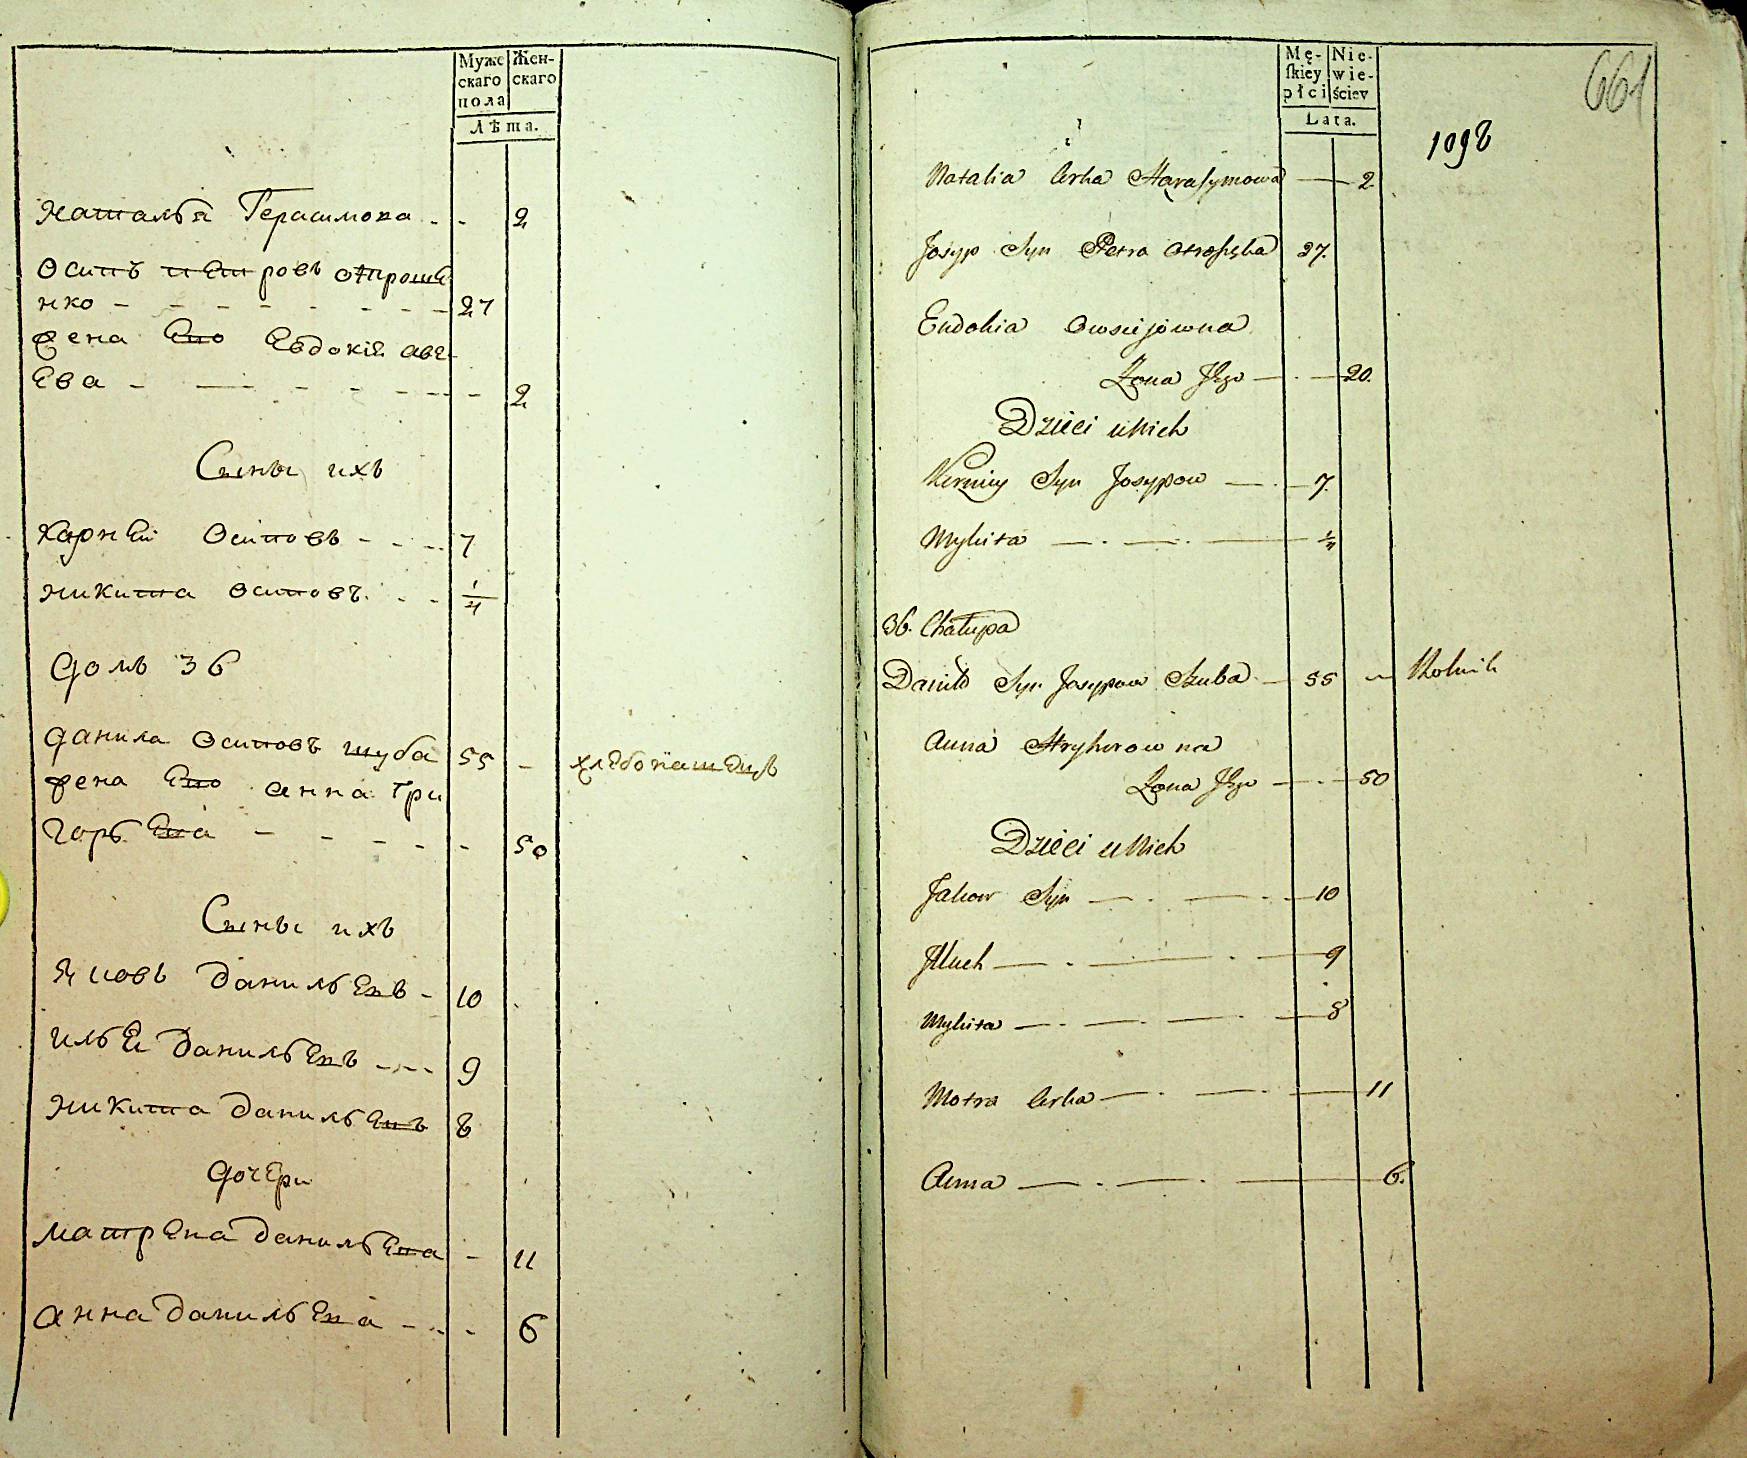 Муже
скаго
пола
Жен-
скаго
Лѣта.
Наталья Герасимова - - 2
Осипъ Петровъ Отроше
нко - - - - - - - 27
жена Его Евдокія Авсе
Ева - - - - - - - 2
Сыны ихъ
Карней Осиповъ - - - 7
Никита Осиповъ. - - 1/4
Домъ 36
Данила Осиповъ Шуба 55 - хлѣбопашецъ
жена Его Анна Гри
горьева - - - - - 50
Сыны ихъ
Яковъ Данильевъ - 10
Илья Данильевъ - - - 9
Никита Данильевъ 8
Дочери
Матрена Данильева - 11
Анна Данильева - - - 6
Mę-
skiey
płci
Nie-
wie-
ściey
Lata.
661
1098
Natalia Cerka Harasymowa — 2
Josyp Syn Petra 27.
Eudokia Owsiejówna
Żona Jego — . — 20.
Dzieci u Nich
Kerniey Syn Josypow — . — 7.
Mykita — . — . — 1/4
36. Chałupa
Daniło Syn Josypow Szuba — 55 — Rolnik
Anna Hryhorowna
Żona Jego — . — 50
Dzieci u Nich
Jakow Syn — . — . — 10
Illuch — . — . — 9
Mykita — . — . — 8
Motra Cerka — . — . — 11
Anna — . — . — 6.